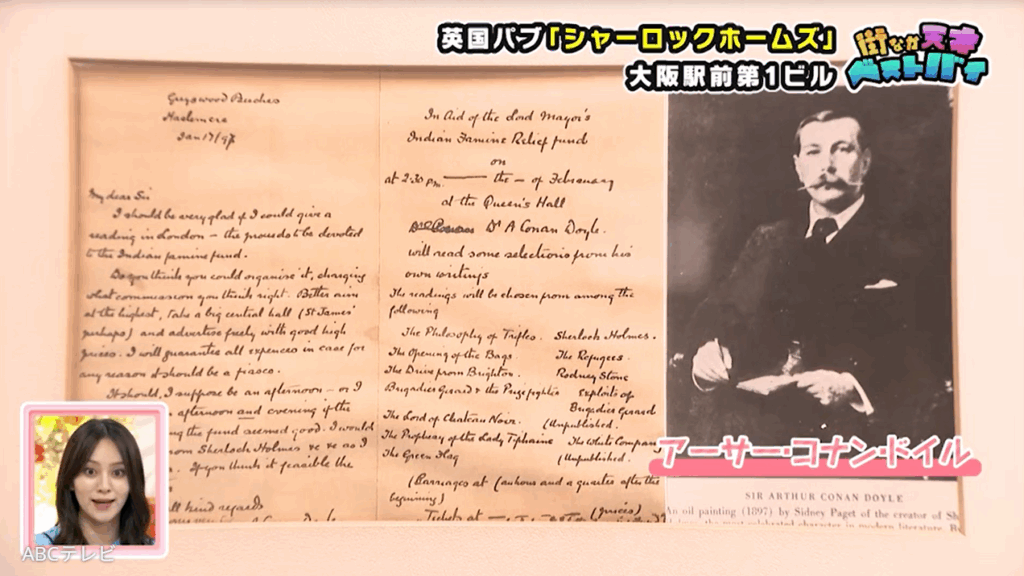 英国パブ「シャーロックホームズ」
大阪駅前第1ビル
街なか天才
ベストバイ
Haslemere
Jan 17/97
My dear Sir
I should be very glad if I could give a
reading in London – the proceeds to be devoted
to the Indian famine fund.
Do you think you could organise it, charging
what commission you think right. Better aim
at the highest, take a big central hall (St James'
perhaps) and advertise freely with good high
prices. I will guarantee all expenses in case for
any reason it should be a fiasco.
It should, I suppose be an afternoon – or I
afternoon and evening if the
the fund seemed good. I would
Sherlock Holmes ve ve as I
If you think it feasible the
kind regards
Conan Doyle
In Aid of the Lord Mayor's
Indian Famine Relief fund
on
at 2:30 pm. — the — of February
at the Queen's Hall
Dr A Conan Doyle.
will read some selections from his
own writings
The readings will be chosen from among the
following
The Philosophy of Trifles. Sherlock Holmes.
The Opening of the Bags. The Refugees.
The Drive from Brighton. Rodney Stone
Brigadier Gerard & the Prizefighter Exploits of
Brigadier Gerard
The Lord of Chateau Noir. (Unpublished.
The Prophesy of the Lady Tiphaine The White Company
The Green Flag (Unpublished.
(Carriages at (an hour and a quarter after the
beginning)
Tickets at (prices)
アーサー・コナン・ドイル
SIR ARTHUR CONAN DOYLE
An oil painting (1897) by Sidney Paget of the creator of
the most celebrated character in modern literature.
ABCテレビ